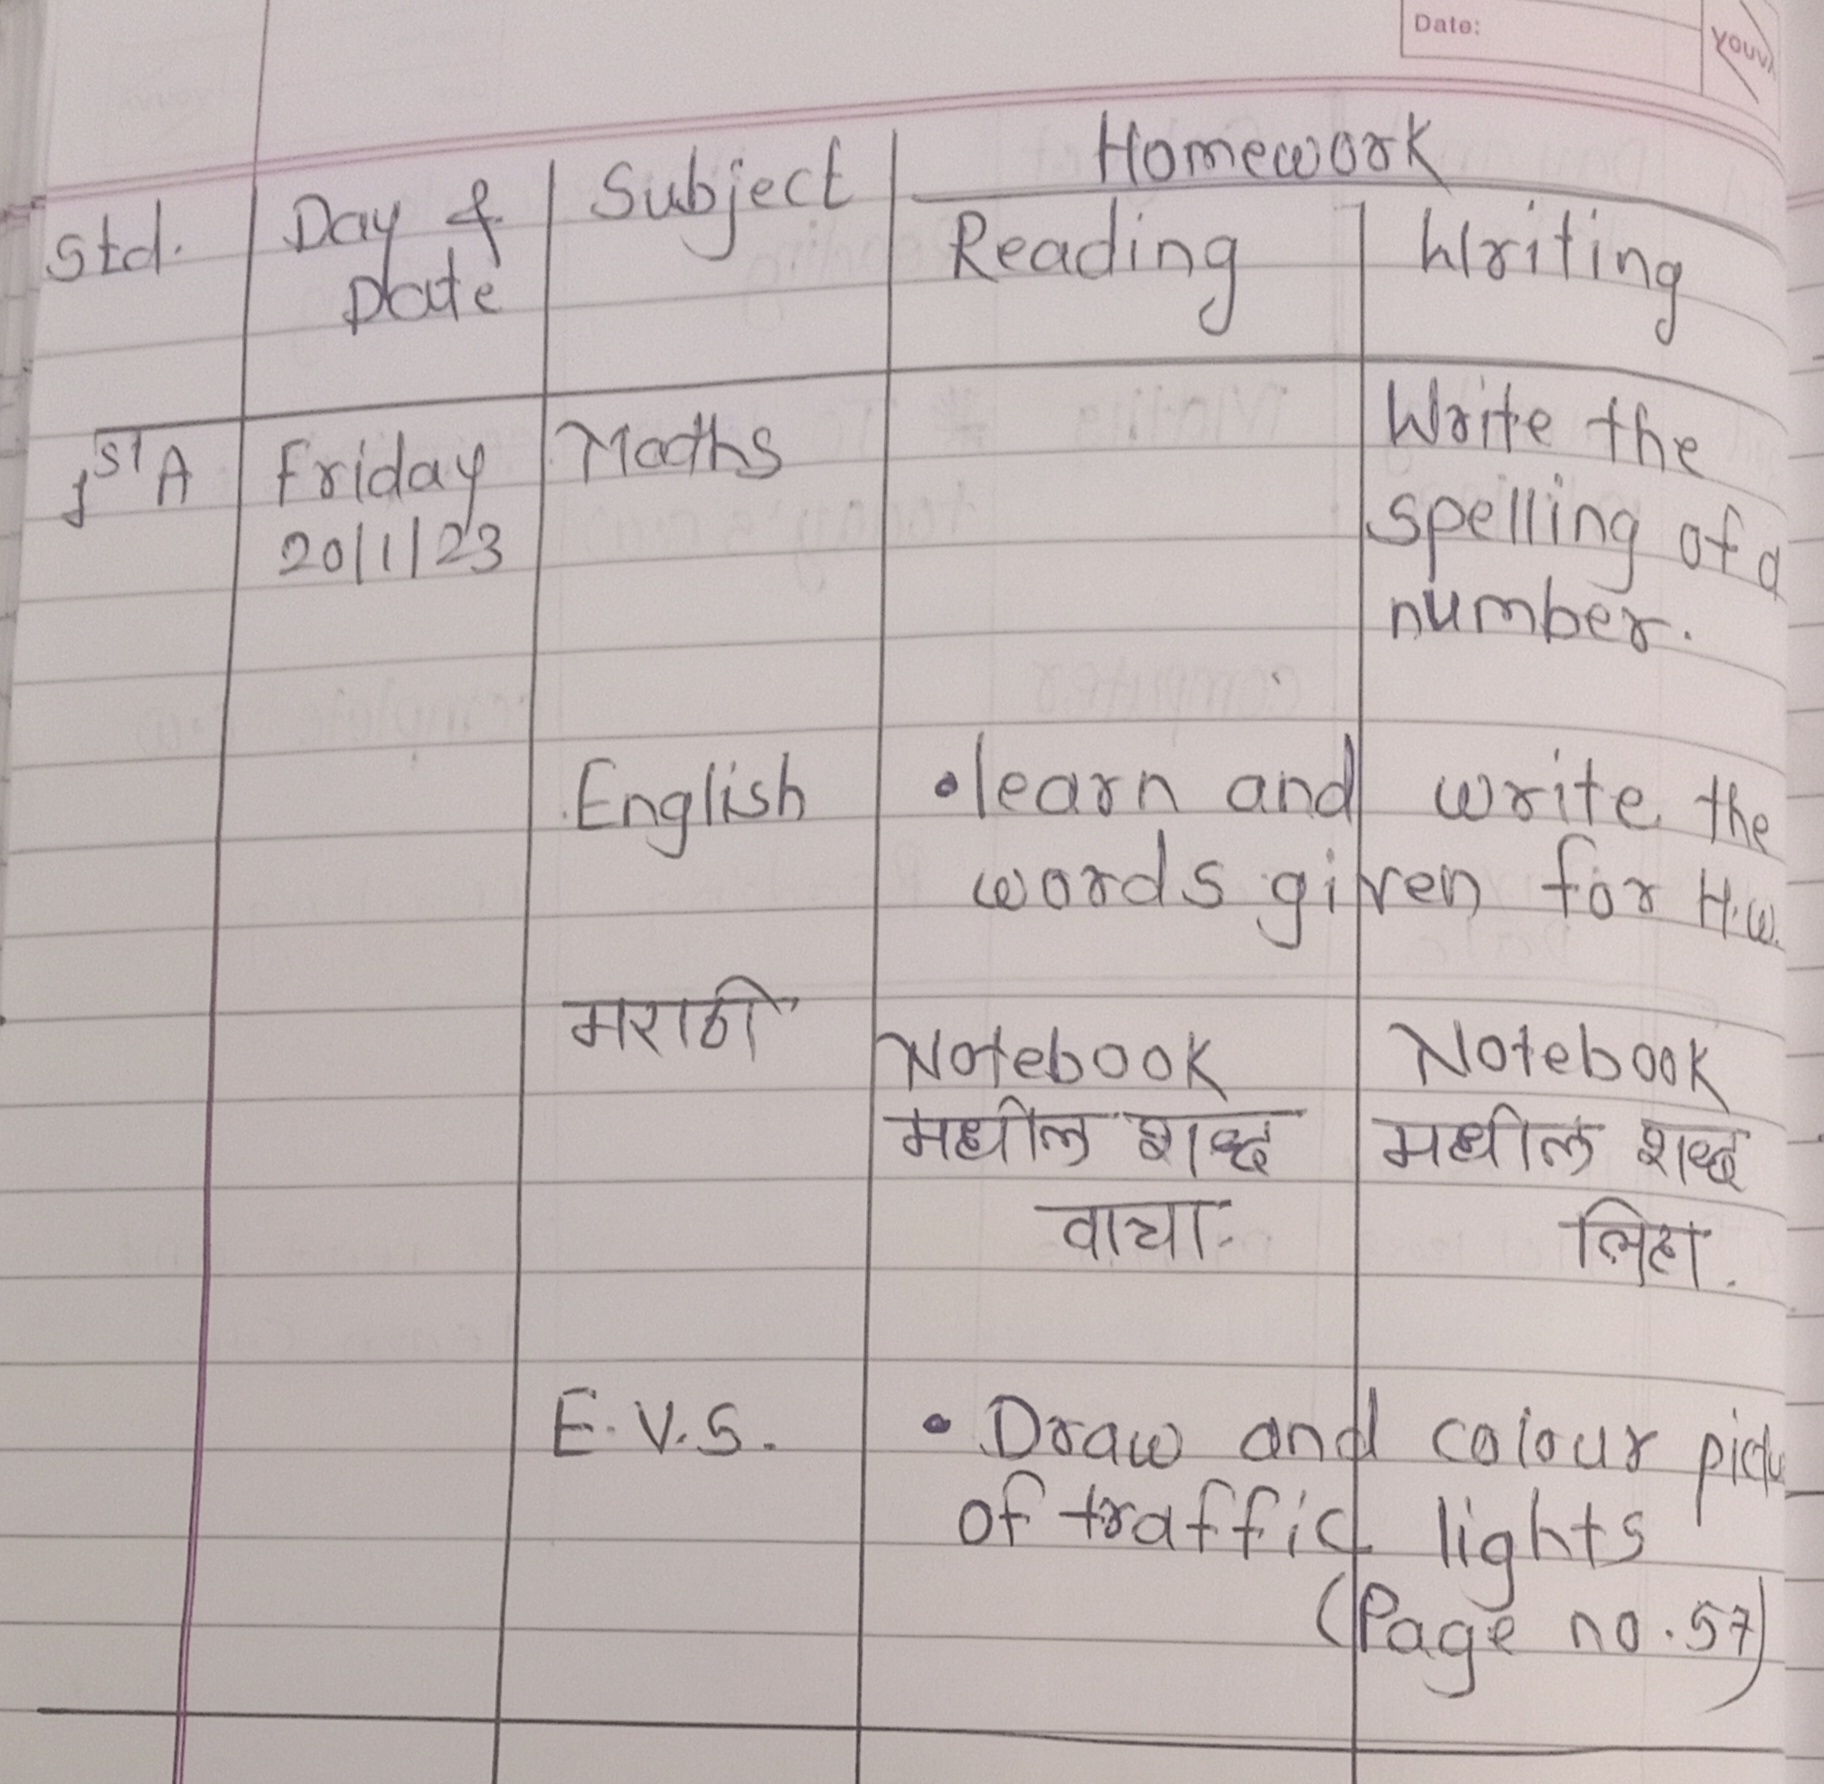 Date:
YOUVA
Homework
Std. Day & Subject Reading Writing
Date
1st A Friday Maths Write the
20/1/23 spelling of a
number.
English • learn and write the
words given for H.W.
मराठी Notebook Notebook
मधील शब्द मधील शब्द
वाचा. लिहा.
E.V.S. • Draw and colour pictu
of traffic lights
(Page no. 57)